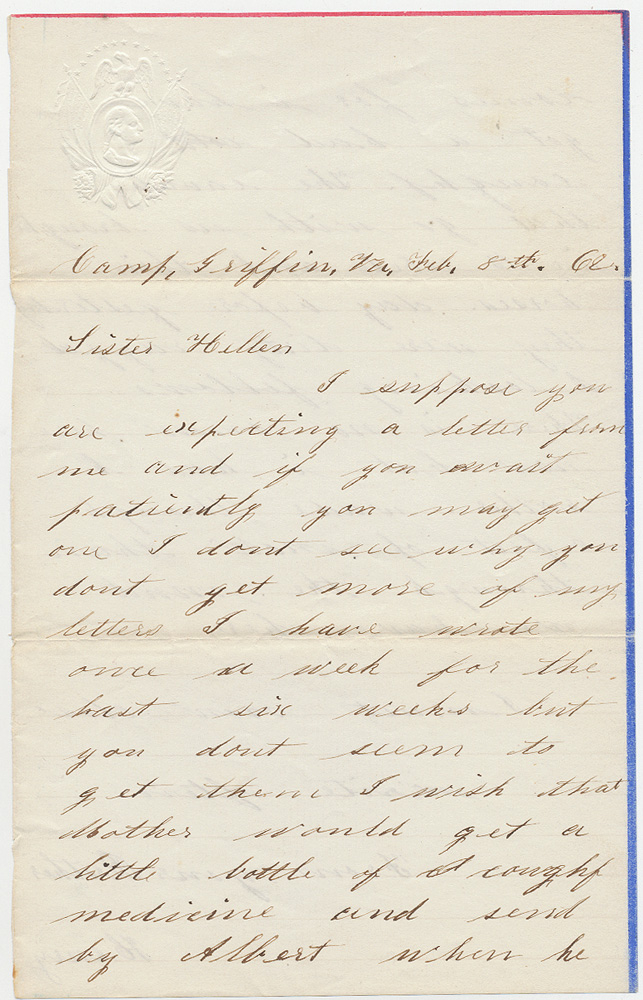 Camp, Griffin, Va, Feb. 8th. 62.
Sister Hellen
I suppose you
are expecting a letter from
me and if you wait
patiently you may get
one I dont see why you
dont get more of my
letters I have wrote
once a week for the
last six weeks but
you dont seem to
get them I wish that
Mother would get a
little bottle of cough
medicine and send
by Albert when he